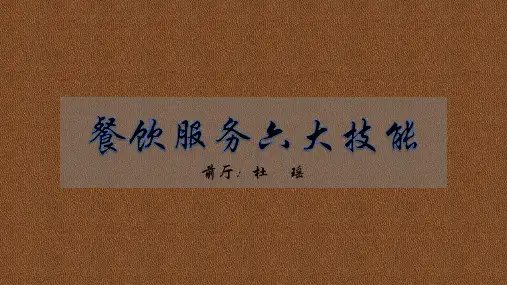 餐饮服务六大技能
前厅：杜 瑶